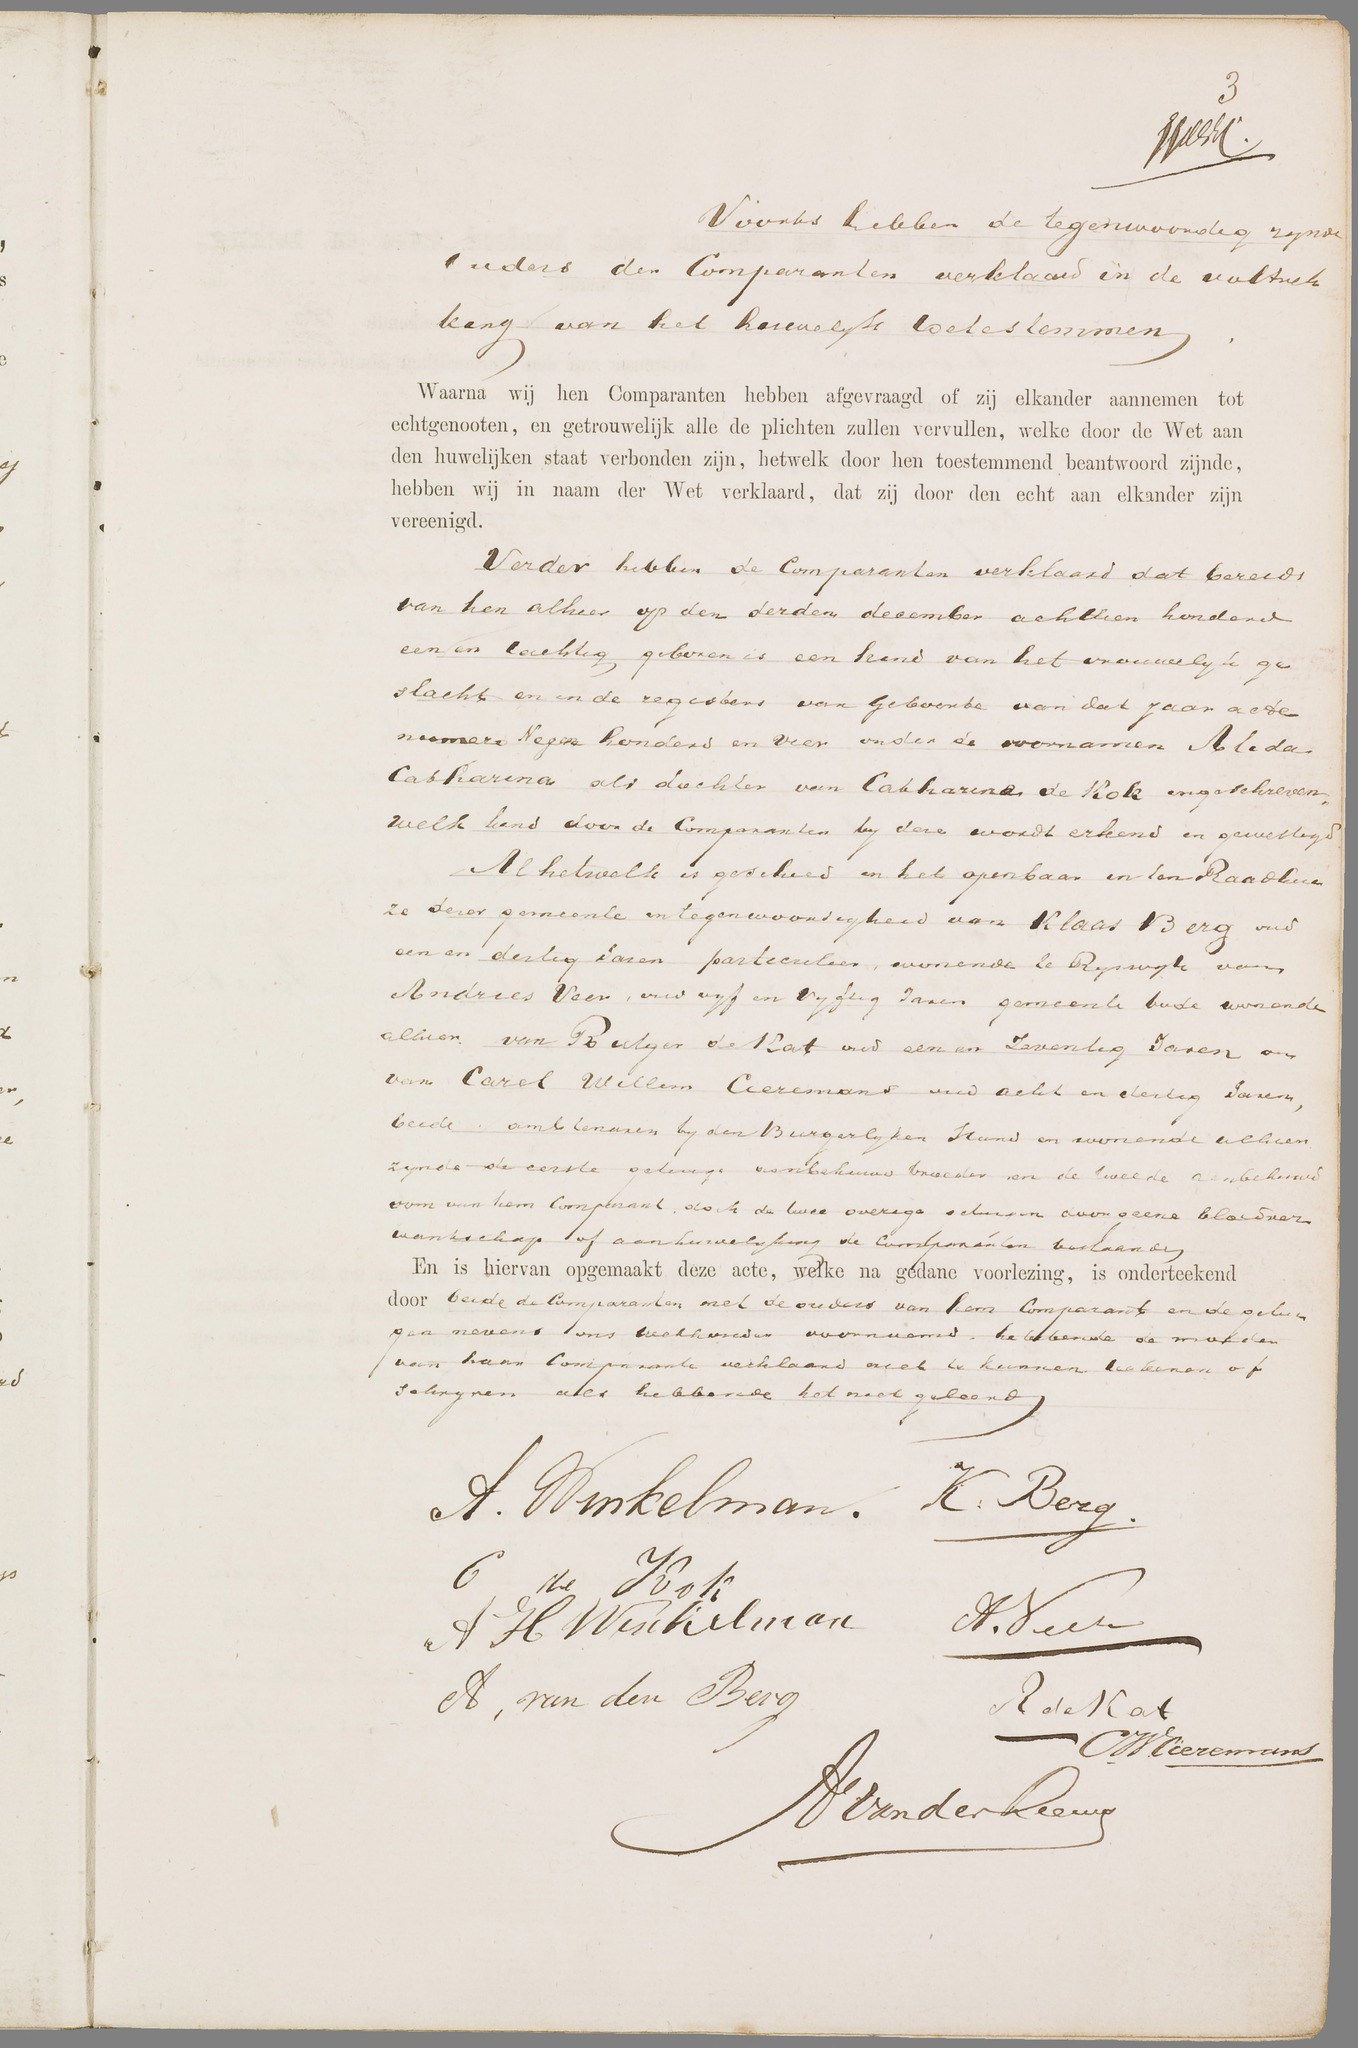 3
Voorts hebben de tegenwoordig zynde
ouders der Comparanten verklaard in de voltrek
king van het huwelyk toetestemmen
Waarna wij hen Comparanten hebben afgevraagd of zij elkander aannemen tot
echtgenooten, en getrouwelijk alle de plichten zullen vervullen, welke door de Wet aan
den huwelijken staat verbonden zijn, hetwelk door hen toestemmend beantwoord zijnde,
hebben wij in naam der Wet verklaard, dat zij door den echt aan elkander zijn
vereenigd.
Verder hebben de Comparanten verklaard dat bereids
van hen alhier op den derden december achttien honderd
een en tachtig geboren is een kind van het vrouwelyk ge
slacht en in de registers van Geboorte van dat jaar acte
numero Negen honderd en vier onder de voornamen Alida
Catharina als dochter van Catharina de Kok ingeschreven,
welk kind door de Comparanten by deze wordt erkend en gewettigd
Al hetwelk is geschied in het openbaar in den Raadhui
ze dezer gemeente in tegenwoordigheid van Klaas Berg oud
een en dertig Jaren particulier, wonende te Ryswyk van
Andries Veer, oud vyf en vyftig Jaren gemeente bode wonende
alhier van Rutger de Kat oud een en Zeventig Jaren en
van Carel Willem Cieremans oud acht en dertig Jaren,
beide ambtenaren by den Burgerlyken Stand en wonende alhier
zynde de eerste getuige aanbehuwd broeder en de tweede aanbehuwd
oom van hem Comparant, doch de twee overige getuigen door geene bloedver
wantschap of aanhuwelyking de Comparanten bestaande
En is hiervan opgemaakt deze acte, welke na gedane voorlezing, is onderteekend
door beide de Comparanten met de ouders van hem Comparant en de getui
gen nevens ons wethouder voornoemd. hebbende de moeder
van haar Comparante verklaard niet te kunnen teekenen of
schryven als hebbende het niet geleerd
A. Winkelman. K. Berg.
C de Kok
A H Winkelman A. Veer
A, van den Berg R de Kat
CWCieremans
A van der Leeuw